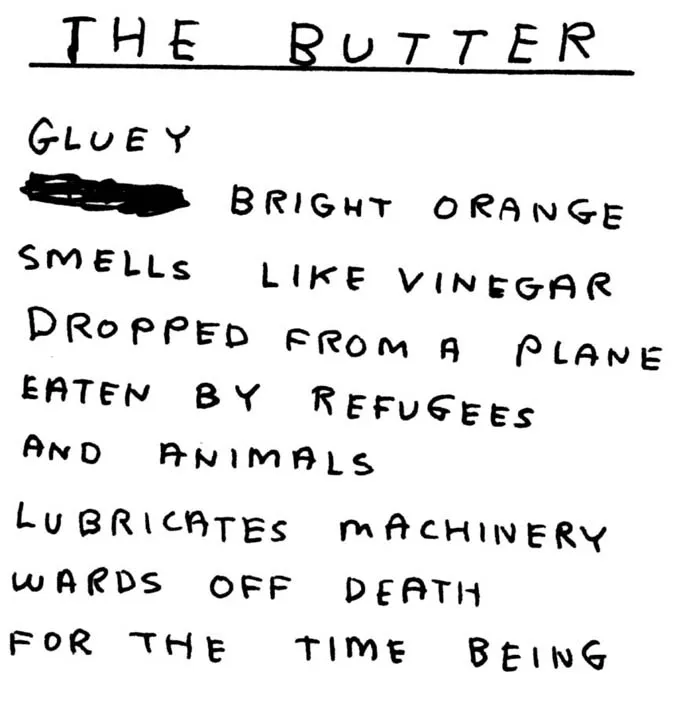 THE BUTTER
GLUEY
BRIGHT ORANGE
SMELLS LIKE VINEGAR
DROPPED FROM A PLANE
EATEN BY REFUGEES
AND ANIMALS
LUBRICATES MACHINERY
WARDS OFF DEATH
FOR THE TIME BEING